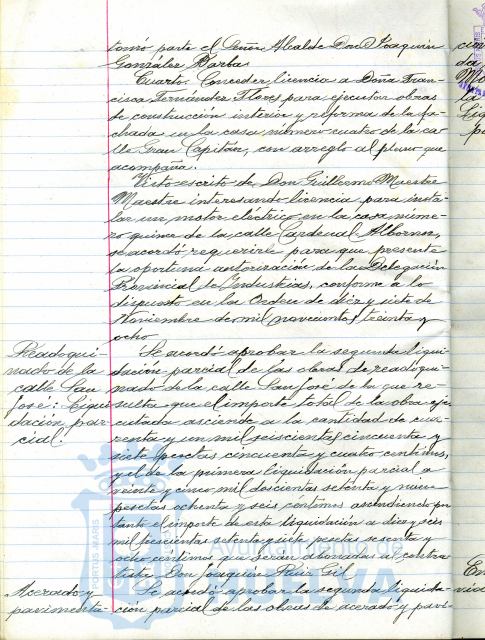 tomó parte el Señor Alcalde Don Joaquín
González Barba.
Cuarto. Conceder licencia a Doña Fran-
cisca Fernández Flores para ejecutar obras
de construcción interior y reforma de la fa-
chada en la casa número cuatro de la ca-
lle Gran Capitán, con arreglo al plano que
acompaña.
Visto escrito de Don Guillermo Maestre
Maestre interesando licencia para insta-
lar un motor eléctrico en la casa núme-
ro quince de la calle Cardenal Albornoz,
se acordó requerirle para que presente
la oportuna autorización de la Delegación
Provincial de Industrias, conforme a lo
dispuesto en la Orden de diez y siete de
Noviembre de mil novecientos treinta y
ocho.
Readoqui-
nado de la
calle San
José: Liqui-
dación par-
cial
Se acordó aprobar la segunda liqui-
dación parcial de las obras de readoqui-
nado de la calle San José de la que re-
sulta que el importe total de la obra eje-
cutada asciende a la cantidad de cua-
renta y un mil seiscientas cincuenta y
siete pesetas cincuenta y cuatro céntimos,
y el de la primera liquidación parcial a
veinte y cinco mil doscientas setenta y nueve
pesetas ochenta y seis céntimos ascendiendo por
tanto el importe de esta liquidación a diez y seis
mil trescientas setenta y siete pesetas sesenta y
ocho céntimos que serán abonadas al contra-
tista Don Joaquín Ruiz Gil.
Acerado y
pavimenta-
Se acordó aprobar la segunda liquida-
ción parcial de las obras de acerado y pavi-
PORTUS MARIS
Ayuntamiento de
HUELVA